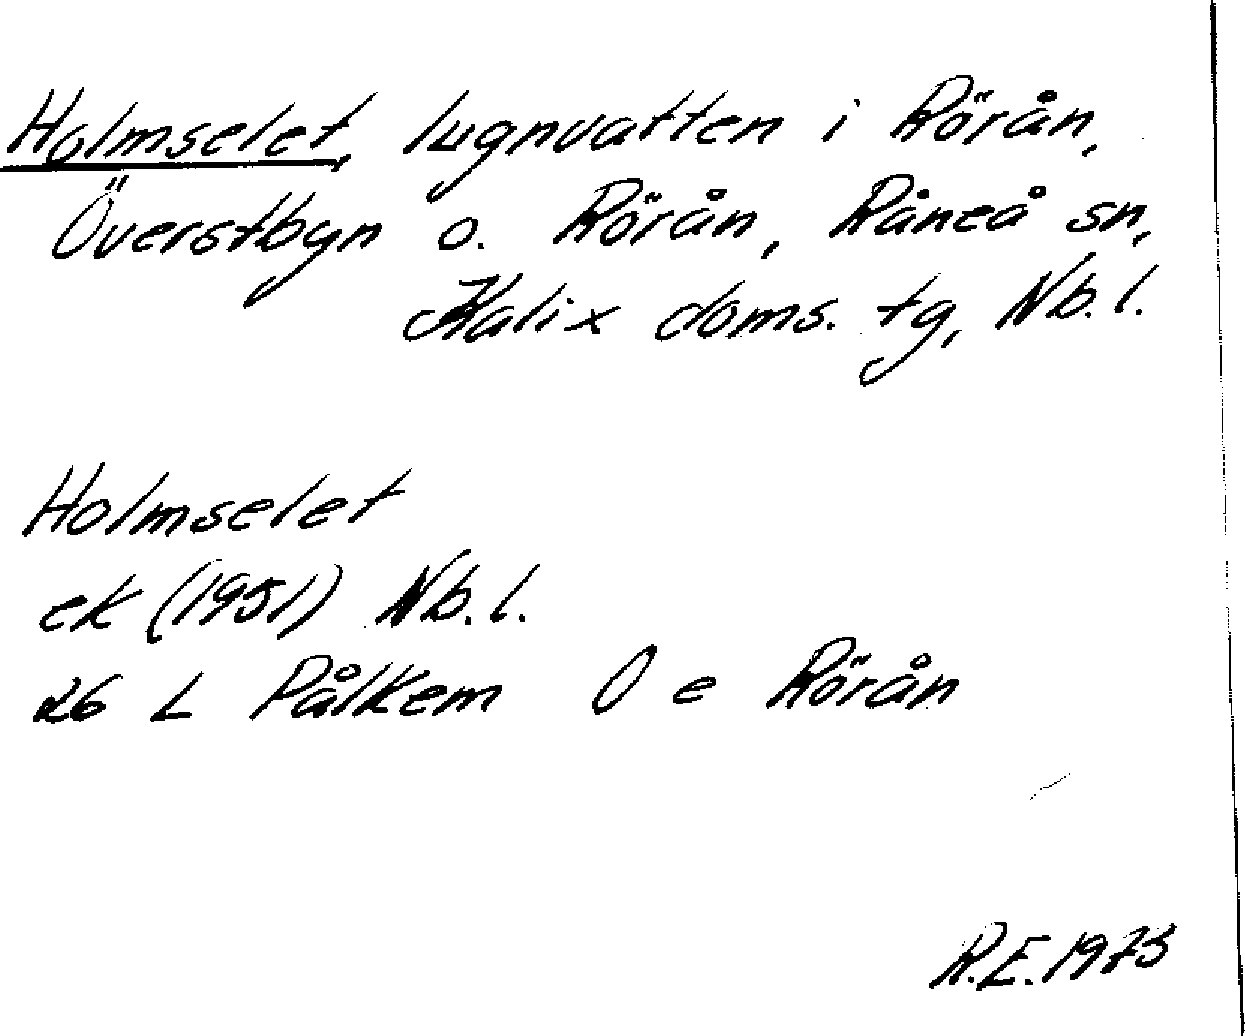 Holmselet, lugnvatten i Rörån,
Överstbyn o. Rörån, Råneå sn,
Kalix doms. tg, Nb.l.
Holmselet
ek (1951) Nb.l.
26 L Pålkem O e Rörån
R.E. 1973